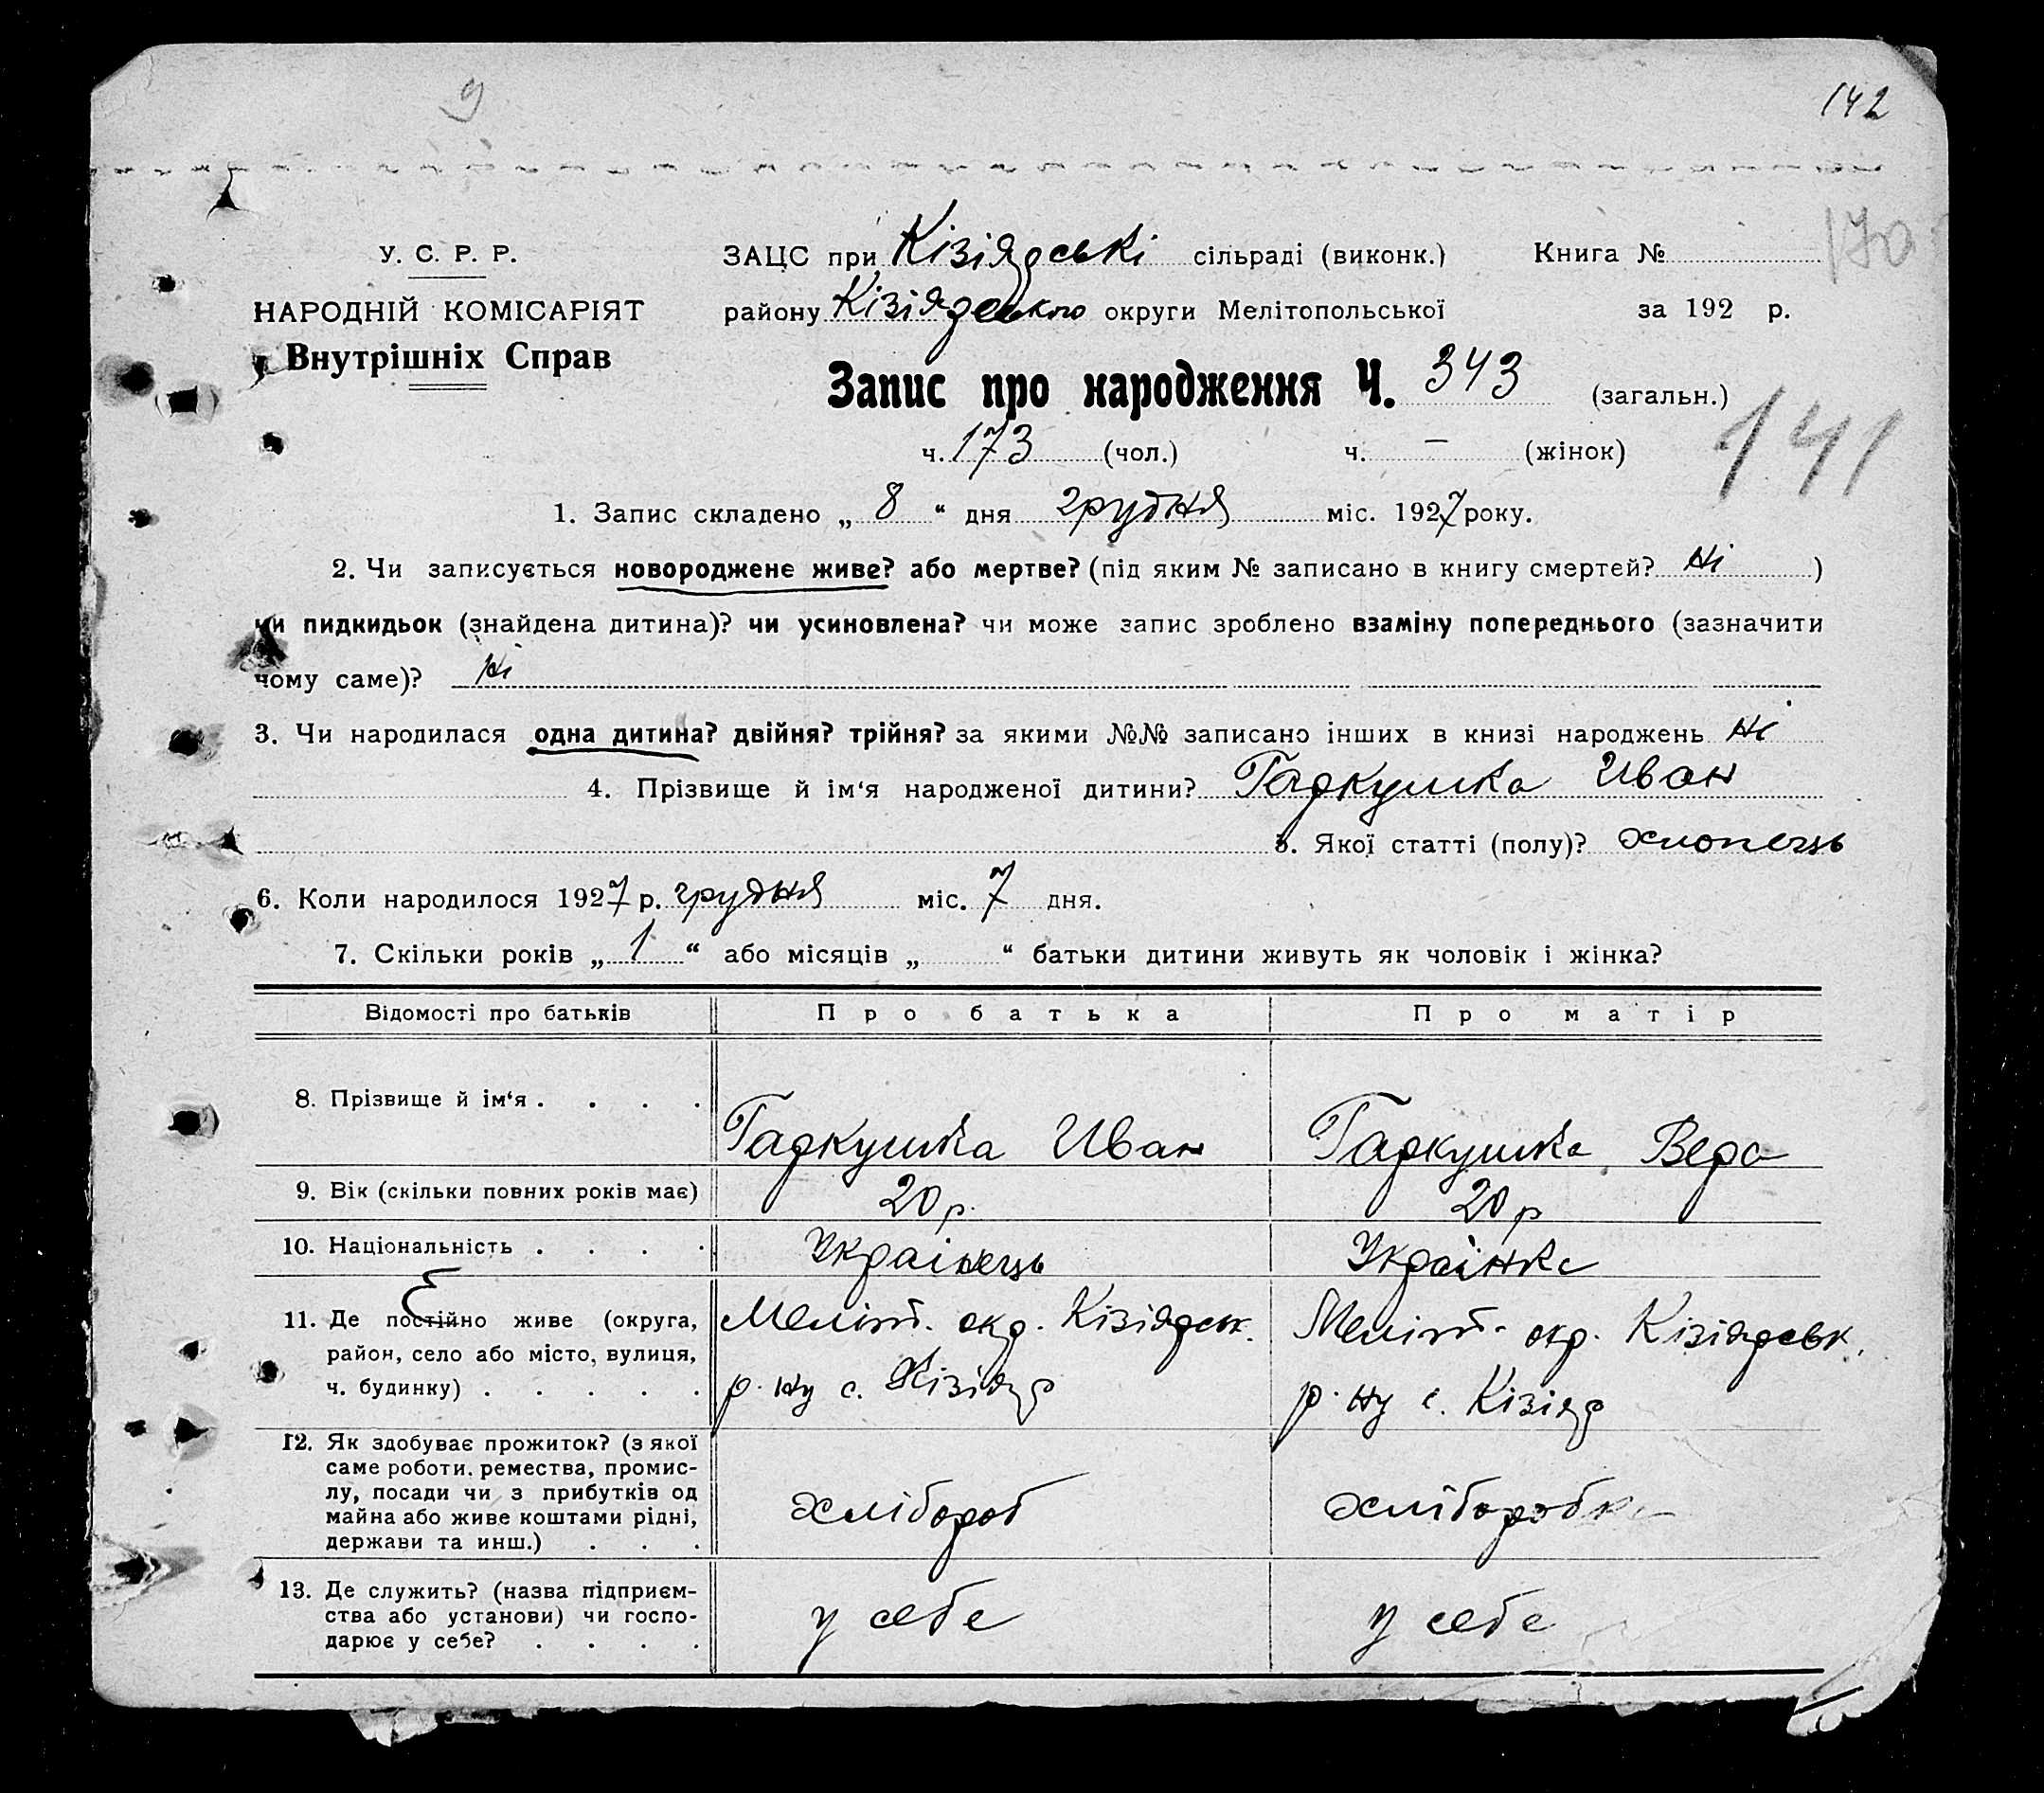 9
142
У. С. Р. Р.
ЗАЦС при Кізіядські сільраді (виконк.) Книга №
170
НАРОДНІЙ КОМІСАРІЯТ
району Кізіядського округи Мелітопольської за 192 р.
Внутрішніх Справ
Запис про народження Ч. 343 (загальн.)
141
ч. 173 (чол.) ч. — (жінок)
1. Запис складено „ 8 “ дня грудня міс. 1927 року.
2. Чи записується новороджене живе? або мертве? (під яким № записано в книгу смертей? ні )
чи пидкидьок (знайдена дитина)? чи усиновлена? чи може запис зроблено взаміну попереднього (зазначити
чому саме)? ні
3. Чи народилася одна дитина? двійня? трійня? за якими №№ записано інших в книзі народжень ні
4. Прізвище й ім‘я народженої дитини? Гадкушка Иван
5. Якої статті (полу)? хлопець
6. Коли народилося 1927 р. грудня міс. 7 дня.
7. Скільки років „ 1 “ або місяців „ “ батьки дитини живуть як чоловік і жінка?
Відомості про батьків Про батька Про матір
8. Прізвище й ім‘я . . . . Гадкушка Иван Гадкушка Вера
9. Вік (скільки повних років має) 20 р. 20 р
10. Національність . . . . Українець Українка
11. Де постійно живе (округа,
район, село або місто, вулиця,
ч. будинку) . . . . .
Меліт. окр. Кізіядськ.
р-ну с. Кізіяр
Меліт. окр. Кізіядськ.
р-ну с. Кізіяр
12. Як здобуває прожиток? (з якої
саме роботи, ремества, промис-
лу, посади чи з прибутків од
майна або живе коштами рідні,
держави та инш.) . . .
хлібороб
хліборобка
13. Де служить? (назва підприєм-
ства або установи) чи госпо-
дарює у себе? . . . .
у себе
у себе